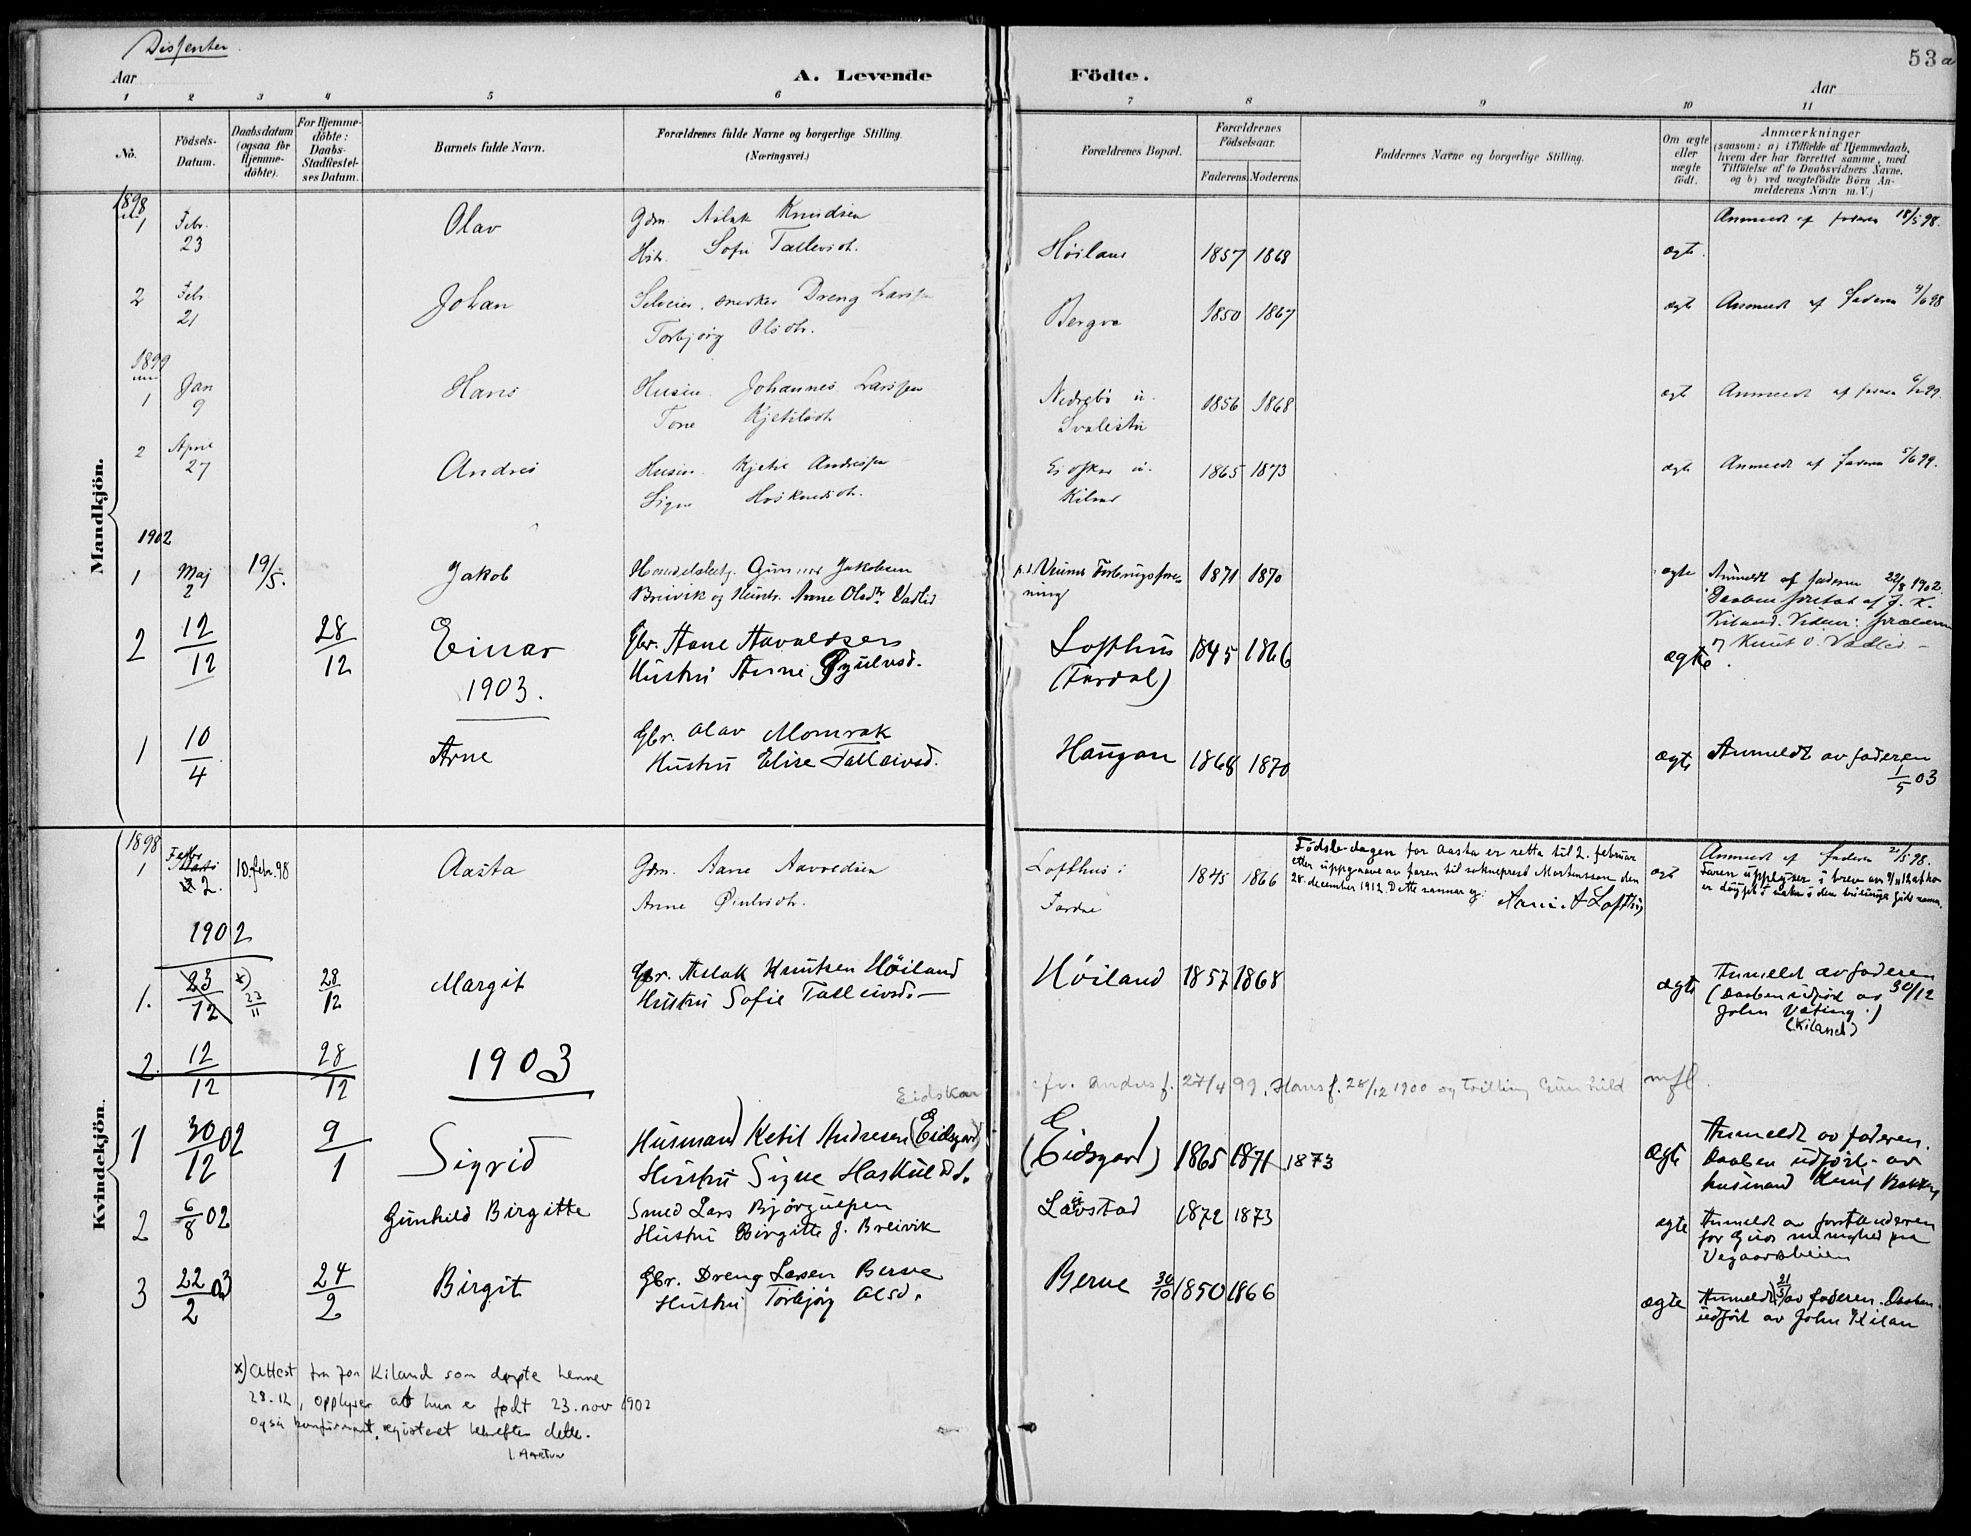 Dissenter.
53 a
Aar
A. Levende Födte.
Aar
1 2 3 4 5 6 7 8 9 10 11
No.
Födsels-Datum.
Daabsdatum (ogsaa for Hjemme-döbte).
For Hjemme-döbte: Daabs-Stadfæstel-ses Datum.
Barnets fulde Navn.
Forældrenes fulde Navne og borgerlige Stilling. (Næringsvei.)
Forældrenes Bopæl.
Forældrenes Födselsaar.
Faderens Moderens
Faddernes Navne og borgerlige Stilling.
Om ægte eller uægte födt.
Anmærkninger
(saasom: a) i Tilfælde af Hjemmedaab, hvem der har forrettet samme, med Tilföielse af to Daabsvidners Navne, og b) ved uægtefödte Börn An-melderens Navn m. V.)
Mandkjön.
1898
1 Febr. 23 Olav Gdm. Aslak Knudsen
Hst. Sofie Tallevsdt. Höiland 1857 1868 ægte. Anmeldt af faderen 18/5 98.
2 Febr. 21 Johan Selveier, snedker Dreng Larssen
Torbjørg Olsdtr. Bergve 1850 1867 ægte Anmeldt af faderen /6 98
1899
1 Jan 9 Hans Husm. Johannes Larssen
Tone Kjetilsdt. 1856 1868 ægte Anmeldt af faderen 99.
2 April 27 Andres Husm. Kjetil Andressen
Signe 1865 1873 ægte Anmeldt af faderen /6 99.
1902
1 Maj 2 19/5. Jakob Gunnar Jakobsen
Breivik og Hustr. Anne Olsdtr. Vadlid 1871 1870 ægte Anmeldt af faderen 22/8 1902.
Daaben forettet af J. K.
Kiland. Vidner: forældrene
og Knut O. Vadlid.
2 12/12 28/12 Einar Gbr. Aane Aavaldsen
Hustru Anne Øyulvsd. Lofthus (Fardal) 1845 1866 ægte.
1903.
1 10/4 Arne Gbr. Olav Momrak
Hustru Elise Talleivsd. Haugan 1868 1870 ægte Anmeldt av faderen
1/5 03
Kvindekjön.
1898
1 Febr. 2. 10. febr. 98 Aasta Gdm. Aane Aavoldsen
Anne Öiulvsdt. Lofthus i 1845 1866
Födsledagen for Aasta er retta til 2. februar
etter uppgaave av faren til sokneprest Mortensson den
28. december 1912. Dette sannar eg: Aani A Lofthus
ægt Anmeldt af faderen 21/5 98.
Faren upplyser i brev av
1902
1. 23/12 x) 23/11 28/12 Margit Gbr. Aslak Knutsen Höiland
Hustru Sofie Talleivsd. Höiland 1857 1868 ægte Anmeldt av faderen 30/12
(Daaben udført av
John Væting.)
(Kiland)
2. 12/12 28/12
1903
Eidskar
fr. Andres f. 27/4 99, Hans f. 28/12 1900 og tvilling Gunhild mfl.
1 30/12 02 9/1 Sigrid Husmand Ketil Andresen (Eidsgard)
Hustru Signe Haskulsd. (Eidsgard) 1865 1871 1873 Ægte Anmeldt av faderen.
Daaben udført av
husmand Knut Bakken
2 6/8 02 Gunhild Birgitte Smed Lars Bjørgulvsen
Hustru Birgitte J. Breivik Lauvstad 1872 1873 ægte Anmeldt av forstanderen
for Guds menighed paa
Vegaardsheien
3 22/2 03 24/2 Birgit Gbr. Dreng Larsen Berve
Hustru Torbjørg Olsd. Berve 30/10 1850 1866 ægte Anmeldt 21/3 av faderen. Daaben
udført av John Kilan
x) Attest fra Jon Kiland som døpte henne
28.12, opplyser at hun er født 23. nov 1902
Også konfirmant. registeret bekrefter dette.